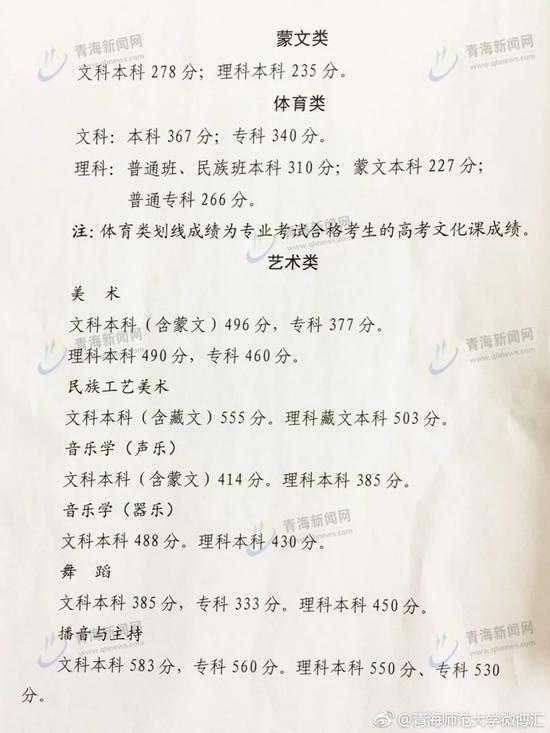 蒙文类
文科本科 278 分；理科本科 235 分。
体育类
文科：本科 367 分；专科 340 分。
理科：普通班、民族班本科 310 分；蒙文本科 227 分；
普通专科 266 分。
注：体育类划线成绩为专业考试合格考生的高考文化课成绩。
艺术类
美 术
文科本科（含蒙文）496 分，专科 377 分。
理科本科 490 分，专科 460 分。
民族工艺美术
文科本科（含藏文）555 分。理科藏文本科 503 分。
音乐学（声乐）
文科本科（含蒙文）414 分。理科本科 385 分。
音乐学（器乐）
文科本科 488 分。理科本科 430 分。
舞 蹈
文科本科 385 分，专科 333 分。理科本科 450 分。
播音与主持
文科本科 583 分，专科 560 分。理科本科 550 分、专科 530
分。
青海新闻网
www.qhnews.com
青海新闻网
www.qhnews.com
青海新闻网
www.qhnews.com
青海新闻网
www.qhnews.com
青海新闻网
www.qhnews.com
青海新闻网
www.qhnews.com
青海新闻网
www.qhnews.com
青海新闻网
www.qhnews.com
@青海师范大学微博汇